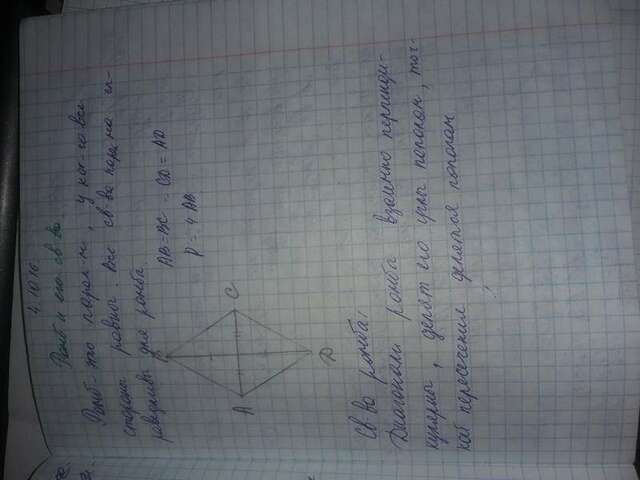 4.10.16
Ромб и его св-ва.
Ромб это парал-м, у кот-го все
стороны равны. Все св-ва парал-ма сп-
раведливы для ромба
AB = BC = CD = AD
P = 4 AB
A
C
D
Св-ва ромба:
Диагонали ромба взаимно перпенди-
кулярны, делят его углы пополам, точ-
кой пересечения делятся пополам